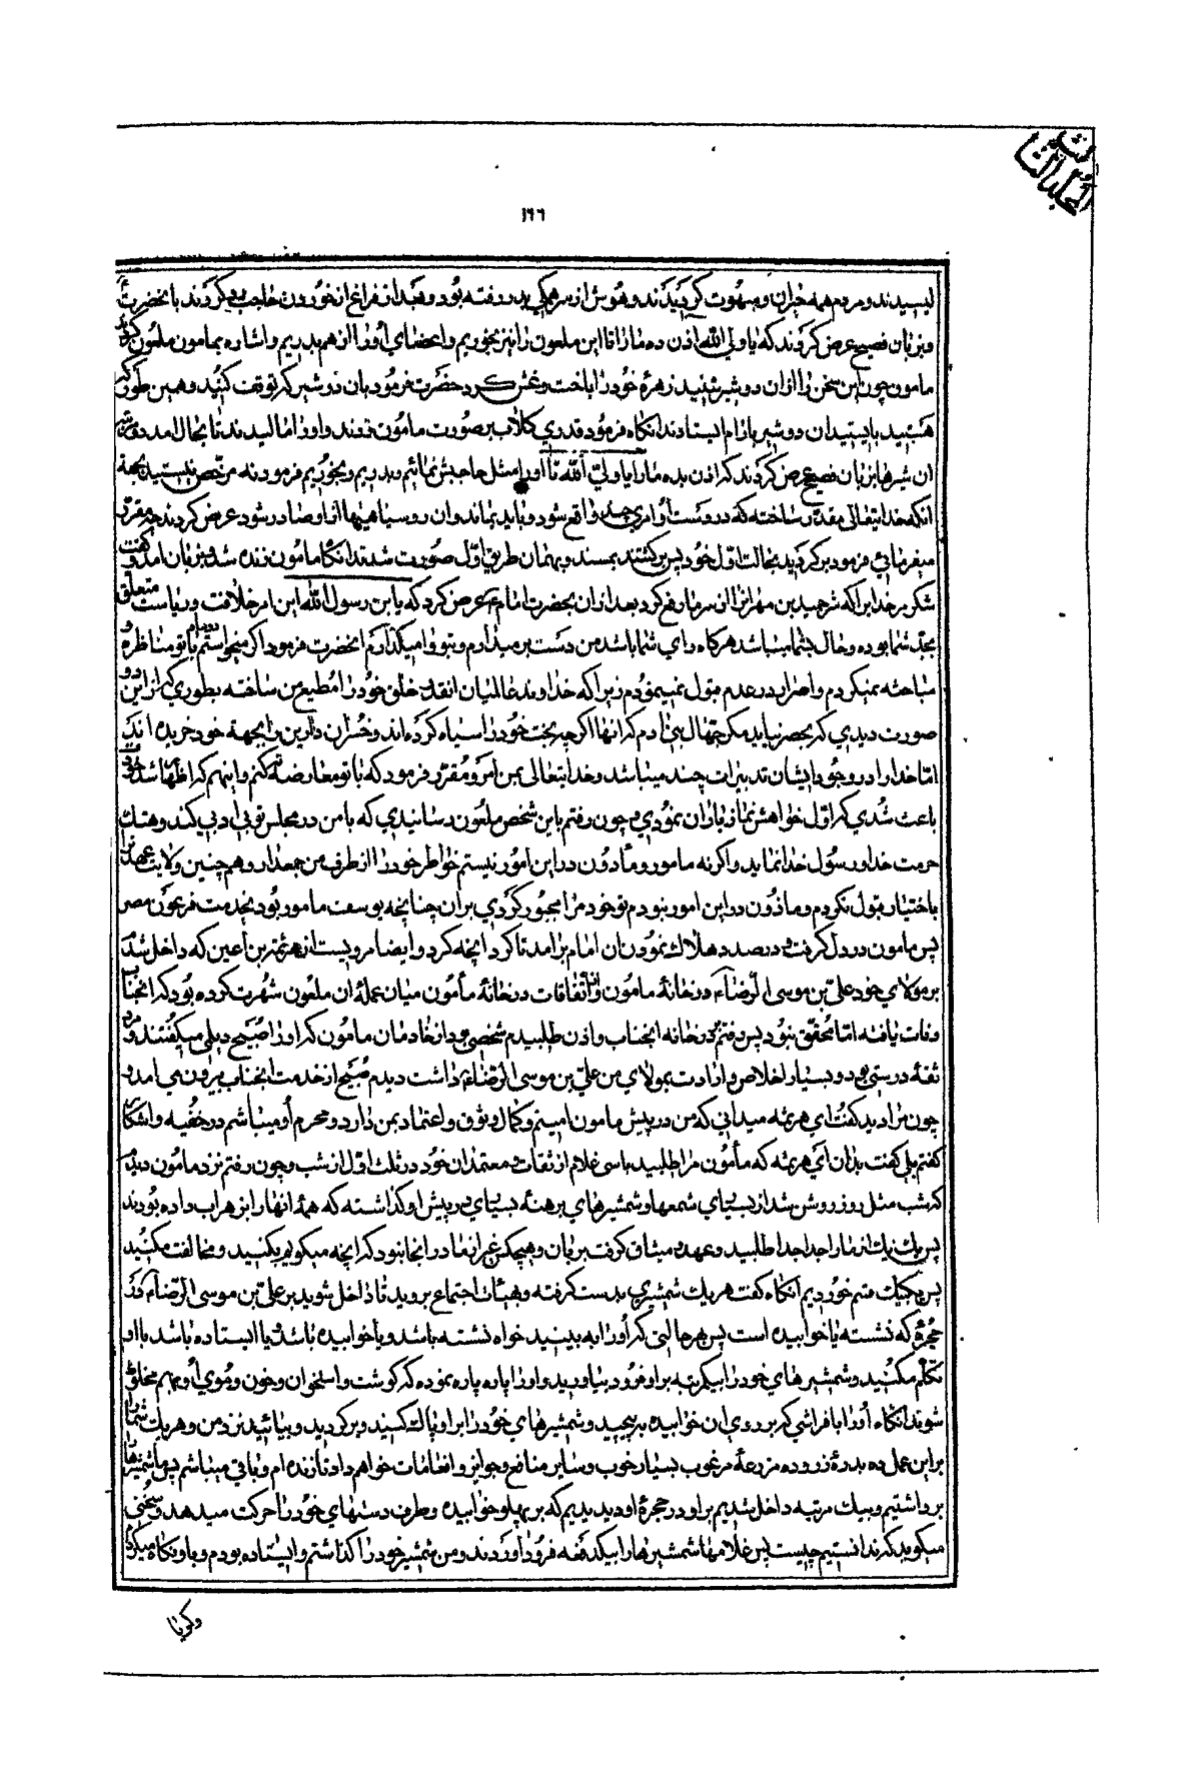 المجلد الثالث
١٦٦
لیسیدند و مردم همه حیران و مبهوت گردیدند و هوش از سر همکی بدر رفته بود و بعد از فراغ از خوردن حاجب رو کردند بانحضرت
و بزبان فصیح عرض کردند که یا ولی الله اذن ده ما را تا این ملعون را نیز بخوریم و اعضای او را از هم بدریم و اشاره بمامون ملعون کردند
مامون چون این سخن را از ان دو شیر شنید زهرهٔ خود را باخت و غش کرد حضرت فرمود بان دو شیر که توقف کنید و همین طور که
هستید بایستید ان دو شیر بارام ایستادند انکاه فرمود قدری کلاب بر صورت مامون زدند و او را مالیدند تا بحال امد
ان شیرها بزبان فصیح عرض کردند که اذن بده ما را یا ولی الله تا او را مثل حاجبش نمائیم و بدریم و بخوریم فرمود نه مرخص نیستید بجهة
انکه خدایتعالی مقدر ساخته که در دست او امری چند واقع شود و باید بماند و ان روسیاهیها از او صادر شود عرض کردند چه مقرر
میفرمائی فرمود برکردید بحالت اول خود پس برکشتند بمسند و بهمان طریق اول صورت شدند انکاه مامون زنده شد و بزبان امد و گفت
شکر مر خدایرا که شر حمید بن مهران را از سر ما رفع کرد بعد از ان بحضرت امام عرض کرد که یا بن رسول الله این امر خلافت و ریاست متعلق
بجد شما بوده و حال بشما میباشد هرکاه رای شما باشد من دست برمیدارم و بتو وامیکذارم انحضرت فرمود اکر میخواستم با تو مناظره و
مباحثه نمیکردم و اصرار در عدم قبول نمینمودم زیرا که خداوند عالمیان انقدر خلق خود را مطیع من ساخته بطوری که از این دو
صورت دیدی که بحصر نیاید مکر جهال بنی ادم که انها اکرچه بخت خود را سیاه کرده اند و خسران دارین را بجهة خود خریده اند
اما خدا را در وجود ایشان تدبیرات چند میباشد و خدایتعالی بمن امر و مقرر فرمود که با تو معارضه نکنم و اینهم که اظهار شد
باعث شدی که اول خواهش نماز باران نمودی و چون رفتم باین شخص ملعون رسانیدی که با من در مجلس تو بی ادبی کند و هتک
حرمت خدا و رسول خدا نماید واکرنه مامور و مأذون در این امور نیستم خواطر خود را از طرف من جمعدار و هم چنین ولایت عهد ترا
باختیار قبول نکردم و ماذون در این امور نبودم تو خود مرا مجبور کردی بر ان چنانچه یوسف مامور بود بخدمت فرعون مصر
پس مامون در دل کرفت و در صدد هلاک نمودن ان امام برامد تا کرد انچه کرد و ایضا مرویست از هرثمة بن اعین که داخل شدم
بر مولای خود علی بن موسی الرضاء در خانهٔ مامون و از اتفاقات در خانهٔ مأمون میان عملهٔ ان ملعون شهرت کرده بود که انجناب
وفات یافته اما محقق نبود پس رفتم در خانه انجناب و اذن طلبیدم شخصی بود از خادمان مامون که او را صبیح دیلمی میکفتند و مرد
ثقهٔ درستی بود و بسیار اخلاص و ارادت بمولای من علی بن موسی الرضاء داشت دیدم صبیح از خدمت انجناب بیرون می امد و
چون مرا دید کفت ای هرثمه میدانی که من در پیش مامون امینم و کمال وثوق و اعتماد بمن دارد و محرم او میباشم در خفیه و اشکار
کفتم بلی کفت بدان ای هرثمه که مأمون مرا طلبید با سی غلام از ثقات و معتمدان خود در ثلث اول از شب و چون رفتم نزد مامون دیدم
که شب مثل روز روشن شد از بسیاری شمعها و شمشیرهای برهنهٔ بسیاری در پیش او کذاشته که همهٔ انها را بزهر اب داده بودند
پس یک یک از ما را جدا جدا طلبید و عهد و میثاق کرفت بزبان و هیچکس غیر از ما در انجا نبود که انچه میکویم بکنید و مخالفت مکنید
پس همکی قسم خوردیم انکاه کفت هر یک شمشیری بدست کرفته و بهیئات اجتماع بروید تا داخل شوید بر علی بن موسی الرضاء در
حجرهٔ که نشسته یا خوابیده است پس بهر حالتی که او را به بینید خواه نشسته باشد و یا خوابیده باشد و یا ایستاده باشد با او
تکلم مکنید و شمشیرهای خود را بیکمرتبه بر او فرود بیاورید و او را پاره پاره نموده که کوشت و استخوان و خون و موی او بهم مخلوط
شوند انکاه او را با فراشی که بر روی ان خوابیده به پیچید و شمشیرهای خود را بر او پاک کنید و برکردید و بیائید نزد من و هر یک شما را
بر این عمل ده بدرهٔ زر و ده مزرعهٔ مرغوب بسیار خوب و سایر منافع و جوایز و انعامات خواهم داد تا زنده ام و باقی میباشم پس ما شمشیرها
برداشتیم و بیک مرتبه داخل شدیم بر او در حجرهٔ او دیدیم که بر پهلو خوابیده و طرف دستهای خود را حرکت میدهد و سخنی
میکوید که ندانستیم چیست پس غلامها شمشیرها را بیکدفعه فرود اوردند و من شمشیر خود را کذاشتم و ایستاده بودم و باو نکاه میکردم
و کویا